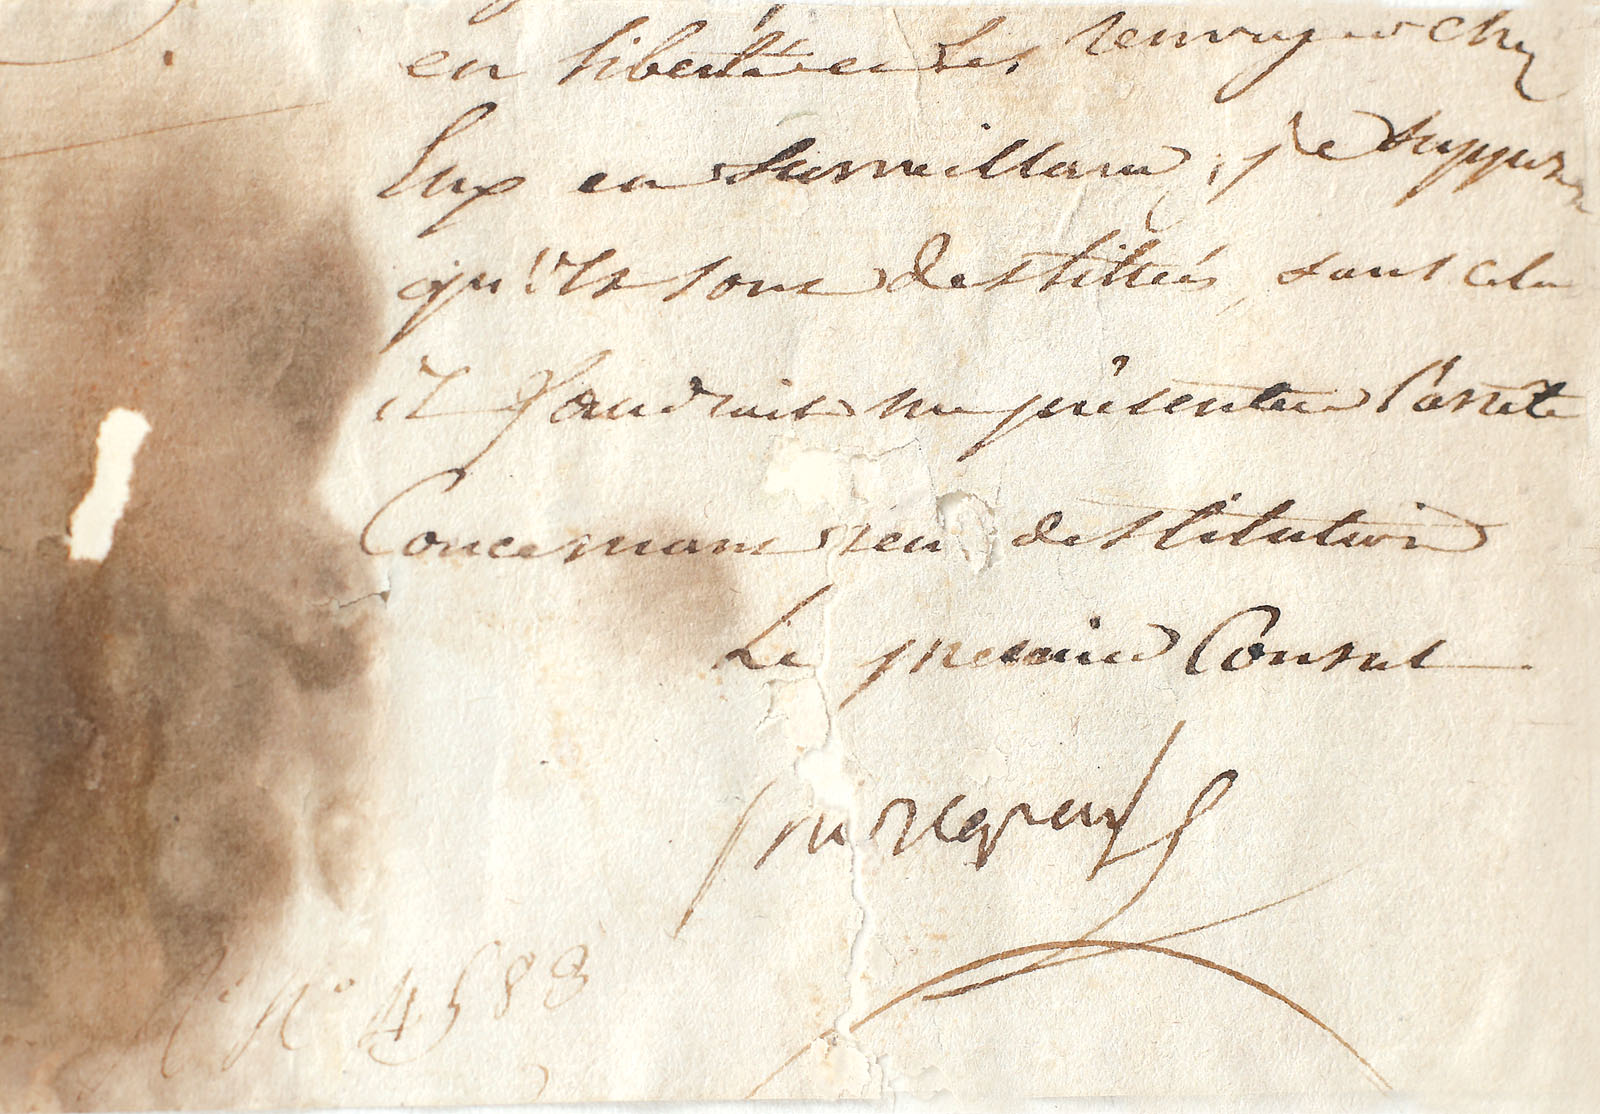 en liberté et les renvoyer chez
Eux en Surveillance, je suppose
qu'ils sont destitués, sans cela
il faudrait me présenter l'arrêté
Concernant leur destitution
Le premier Consul
Bonaparte
N° 4588